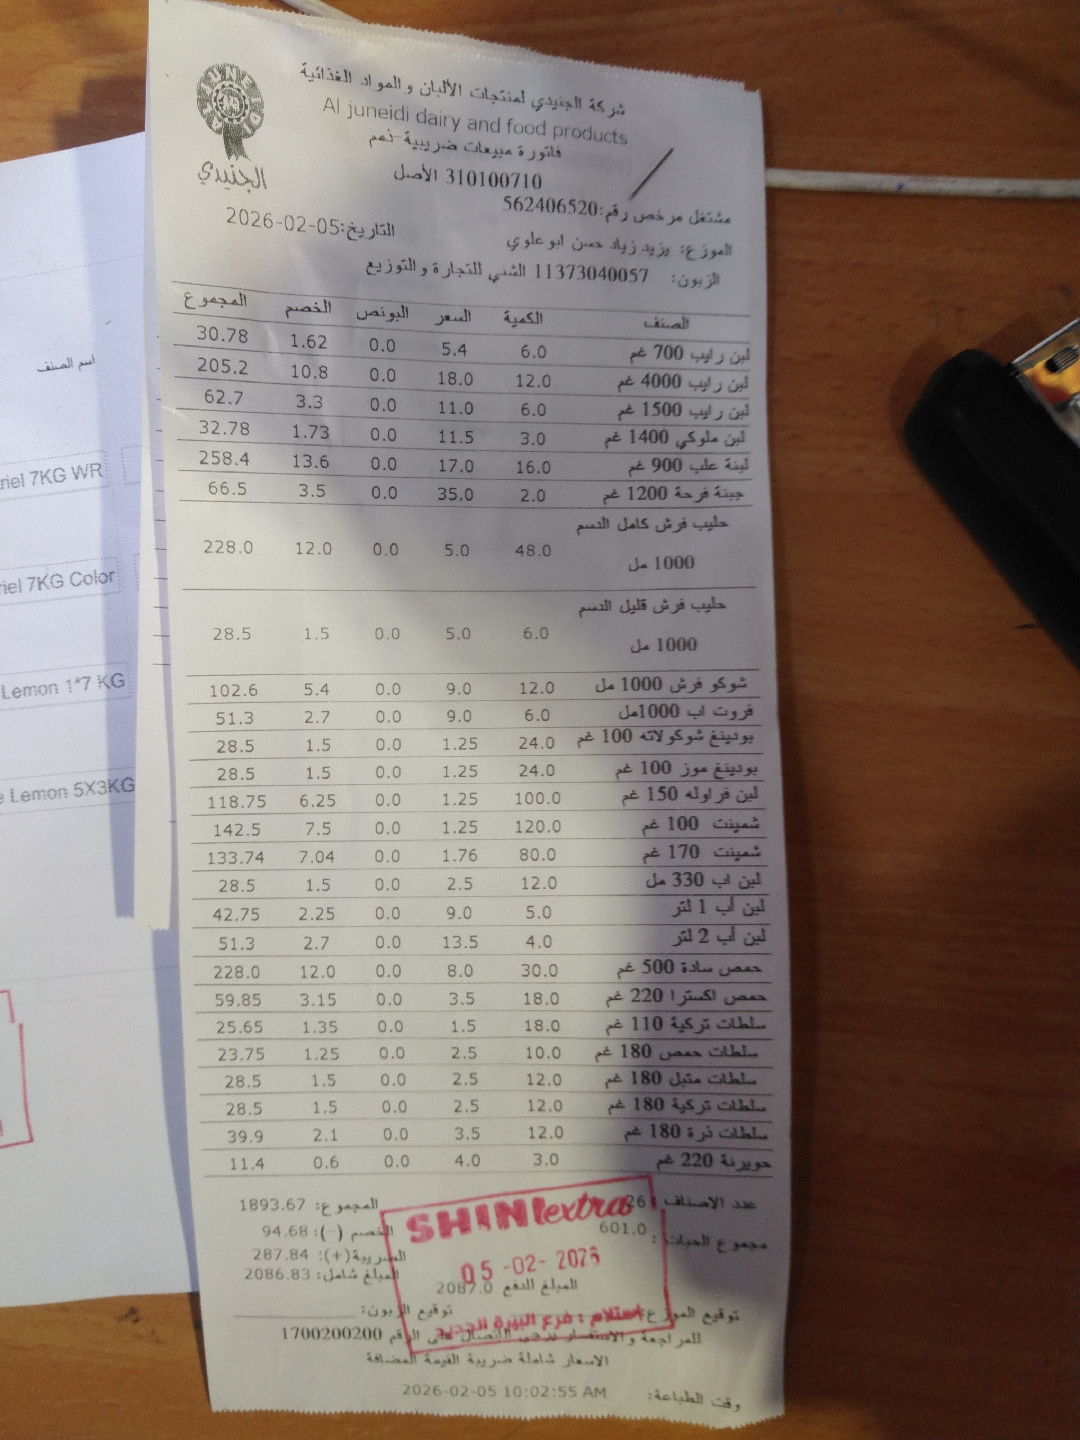 شركة الجنيدي لمنتجات الألبان والمواد الغذائية
Al juneidi dairy and food products
فاتورة مبيعات ضريبية ذمم
310100710 الأصل
الجنيدي
مشتغل مرخص رقم:562406520
التاريخ:2026-02-05
الموزع: يزيد زياد حسن ابو علوي
الزبون: 11373040057 الشني للتجارة والتوزيع
الصنف الكمية السعر البونص الخصم المجموع
لبن رايب 700 غم 6.0 5.4 0.0 1.62 30.78
لبن رايب 4000 غم 12.0 18.0 0.0 10.8 205.2
لبن رايب 1500 غم 6.0 11.0 0.0 3.3 62.7
لبن ملوكي 1400 غم 3.0 11.5 0.0 1.73 32.78
لبنة علب 900 غم 16.0 17.0 0.0 13.6 258.4
جبنة فرحة 1200 غم 2.0 35.0 0.0 3.5 66.5
حليب فرش كامل الدسم
1000 مل 48.0 5.0 0.0 12.0 228.0
حليب فرش قليل الدسم
1000 مل 6.0 5.0 0.0 1.5 28.5
شوكو فرش 1000 مل 12.0 9.0 0.0 5.4 102.6
فروت اب 1000مل 6.0 9.0 0.0 2.7 51.3
بودينغ شوكولاته 100 غم 24.0 1.25 0.0 1.5 28.5
بودينغ موز 100 غم 24.0 1.25 0.0 1.5 28.5
لبن فراوله 150 غم 100.0 1.25 0.0 6.25 118.75
شمينت 100 غم 120.0 1.25 0.0 7.5 142.5
شمينت 170 غم 80.0 1.76 0.0 7.04 133.74
لبن اب 330 مل 12.0 2.5 0.0 1.5 28.5
لبن أب 1 لتر 5.0 9.0 0.0 2.25 42.75
لبن أب 2 لتر 4.0 13.5 0.0 2.7 51.3
حمص سادة 500 غم 30.0 8.0 0.0 12.0 228.0
حمص اكسترا 220 غم 18.0 3.5 0.0 3.15 59.85
سلطات تركية 110 غم 18.0 1.5 0.0 1.35 25.65
سلطات حمص 180 غم 10.0 2.5 0.0 1.25 23.75
سلطات متبل 180 غم 12.0 2.5 0.0 1.5 28.5
سلطات تركية 180 غم 12.0 2.5 0.0 1.5 28.5
سلطات ذرة 180 غم 12.0 3.5 0.0 2.1 39.9
حويرنة 220 غم 3.0 4.0 0.0 0.6 11.4
عدد الاصناف : 26 المجموع: 1893.67
مجموع الحبات : 601.0 الخصم (-): 94.68
الضريبة(+): 287.84
المبلغ شامل: 2086.83
المبلغ للدفع 2087.0
توقيع الموزع: توقيع الزبون:
للمراجعة والاستفسار يرجى الاتصال على الرقم 1700200200
الاسعار شاملة ضريبة القيمة المضافة
وقت الطباعة: 2026-02-05 10:02:55 AM
SHINI extra
05 -02- 2026
استلام : فرع البيرة الجديد
اسم الصنف
riel 7KG WR
riel 7KG Color
Lemon 1*7 KG
e Lemon 5X3KG